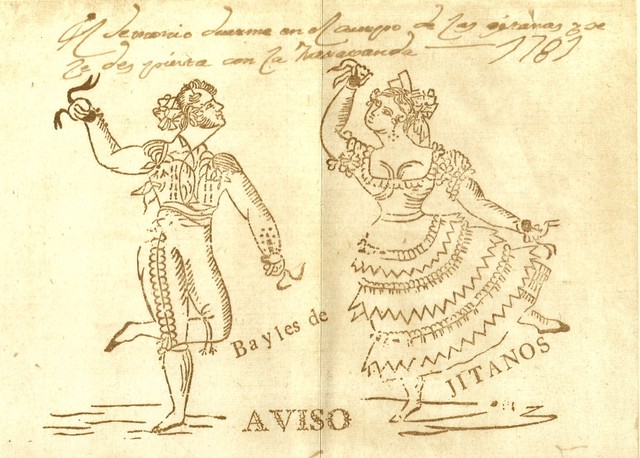 El demonio duerme en el cuerpo de las gitanas y se
le despierta con la Zarabanda — 1781
Bayles de
JITANOS
AVISO